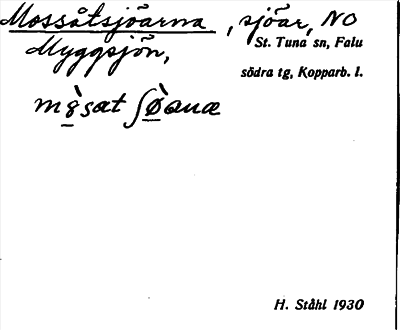 Mossåtsjöarna, sjöar, NO
Myggsjön,
St. Tuna sn, Falu
södra tg, Kopparb. l.
mº̀sæt ʃø̀anæ
H. Ståhl 1930